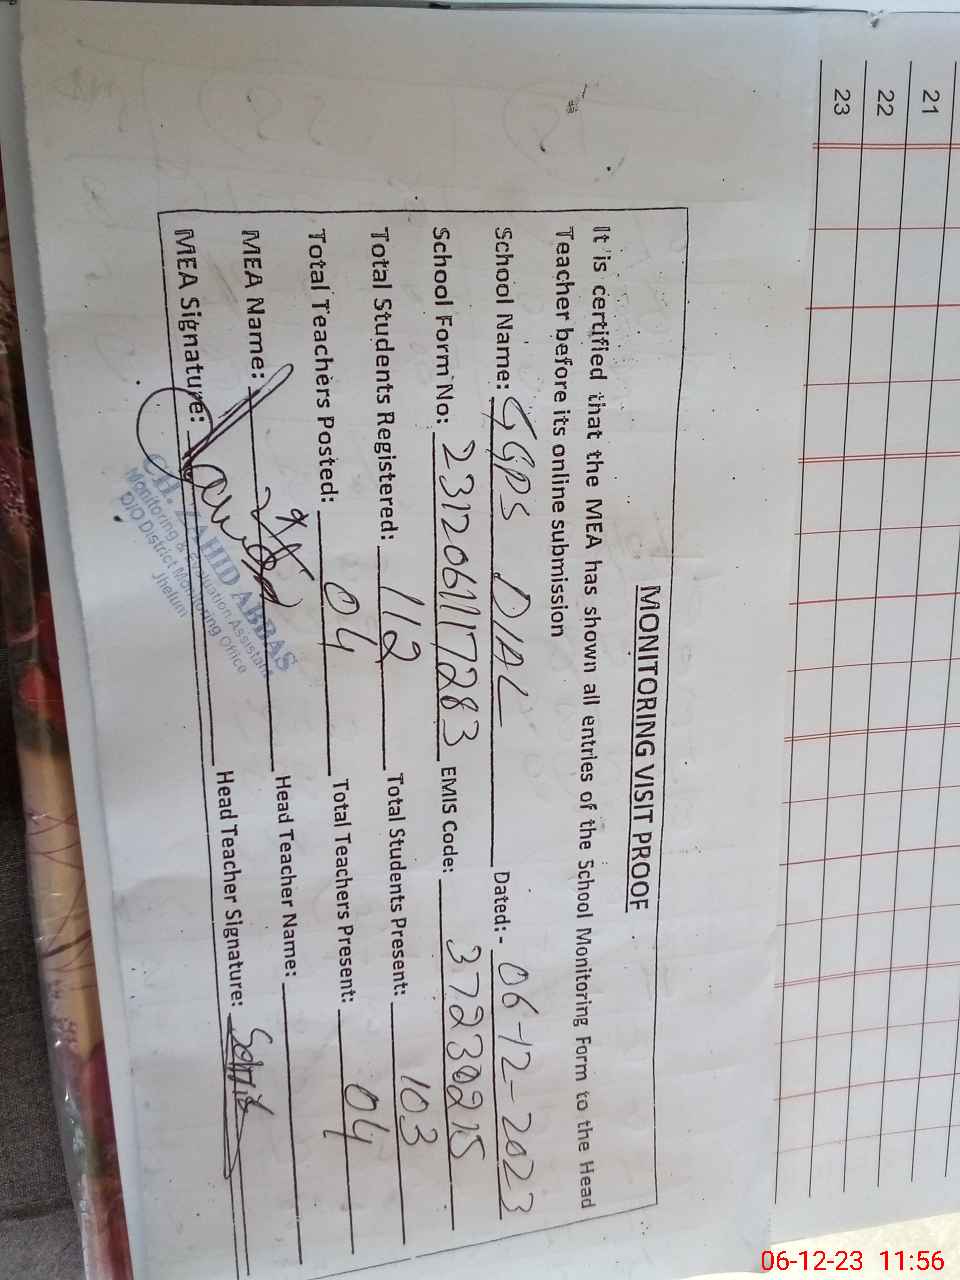 21
22
23
MONITORING VISIT PROOF
It is certified that the MEA has shown all entries of the School Monitoring Form to the Head
Teacher before its online submission
School Name: GGPS DIAL Dated:- 06-12-2023
School Form No: 231206117283 EMIS Code: 37230215
Total Students Registered: 112 Total Students Present: 103
Total Teachers Posted: 04 Total Teachers Present: 04
MEA Name: Head Teacher Name:
MEA Signature: Head Teacher Signature:
CH. ZAHID ABBAS
Monitoring & Evaluation Assistant
O/O District Monitoring Office
Jhelum
06-12-23 11:56